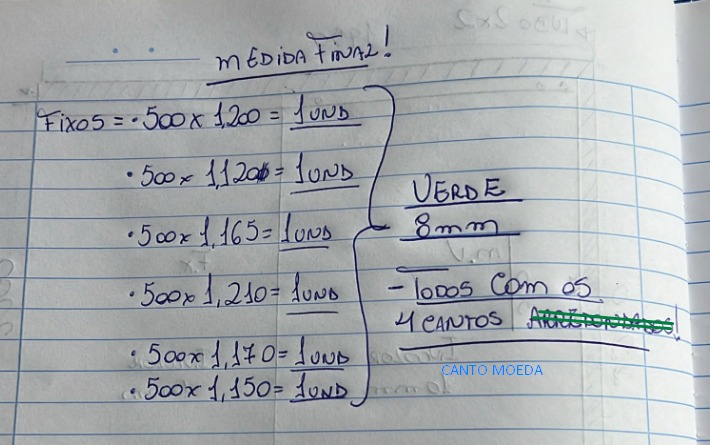 MEDIDA FINAL!
FIXOS = • 500 x 1,200 = 1 UND
• 500 x 1,120 = 1 UND
• 500 x 1,165 = 1 UND
• 500 x 1,210 = 1 UND
• 500 x 1,170 = 1 UND
• 500 x 1,150 = 1 UND
VERDE
8mm
- TODOS COM OS
4 CANTOS ARREDONDADOS!
CANTO MOEDA